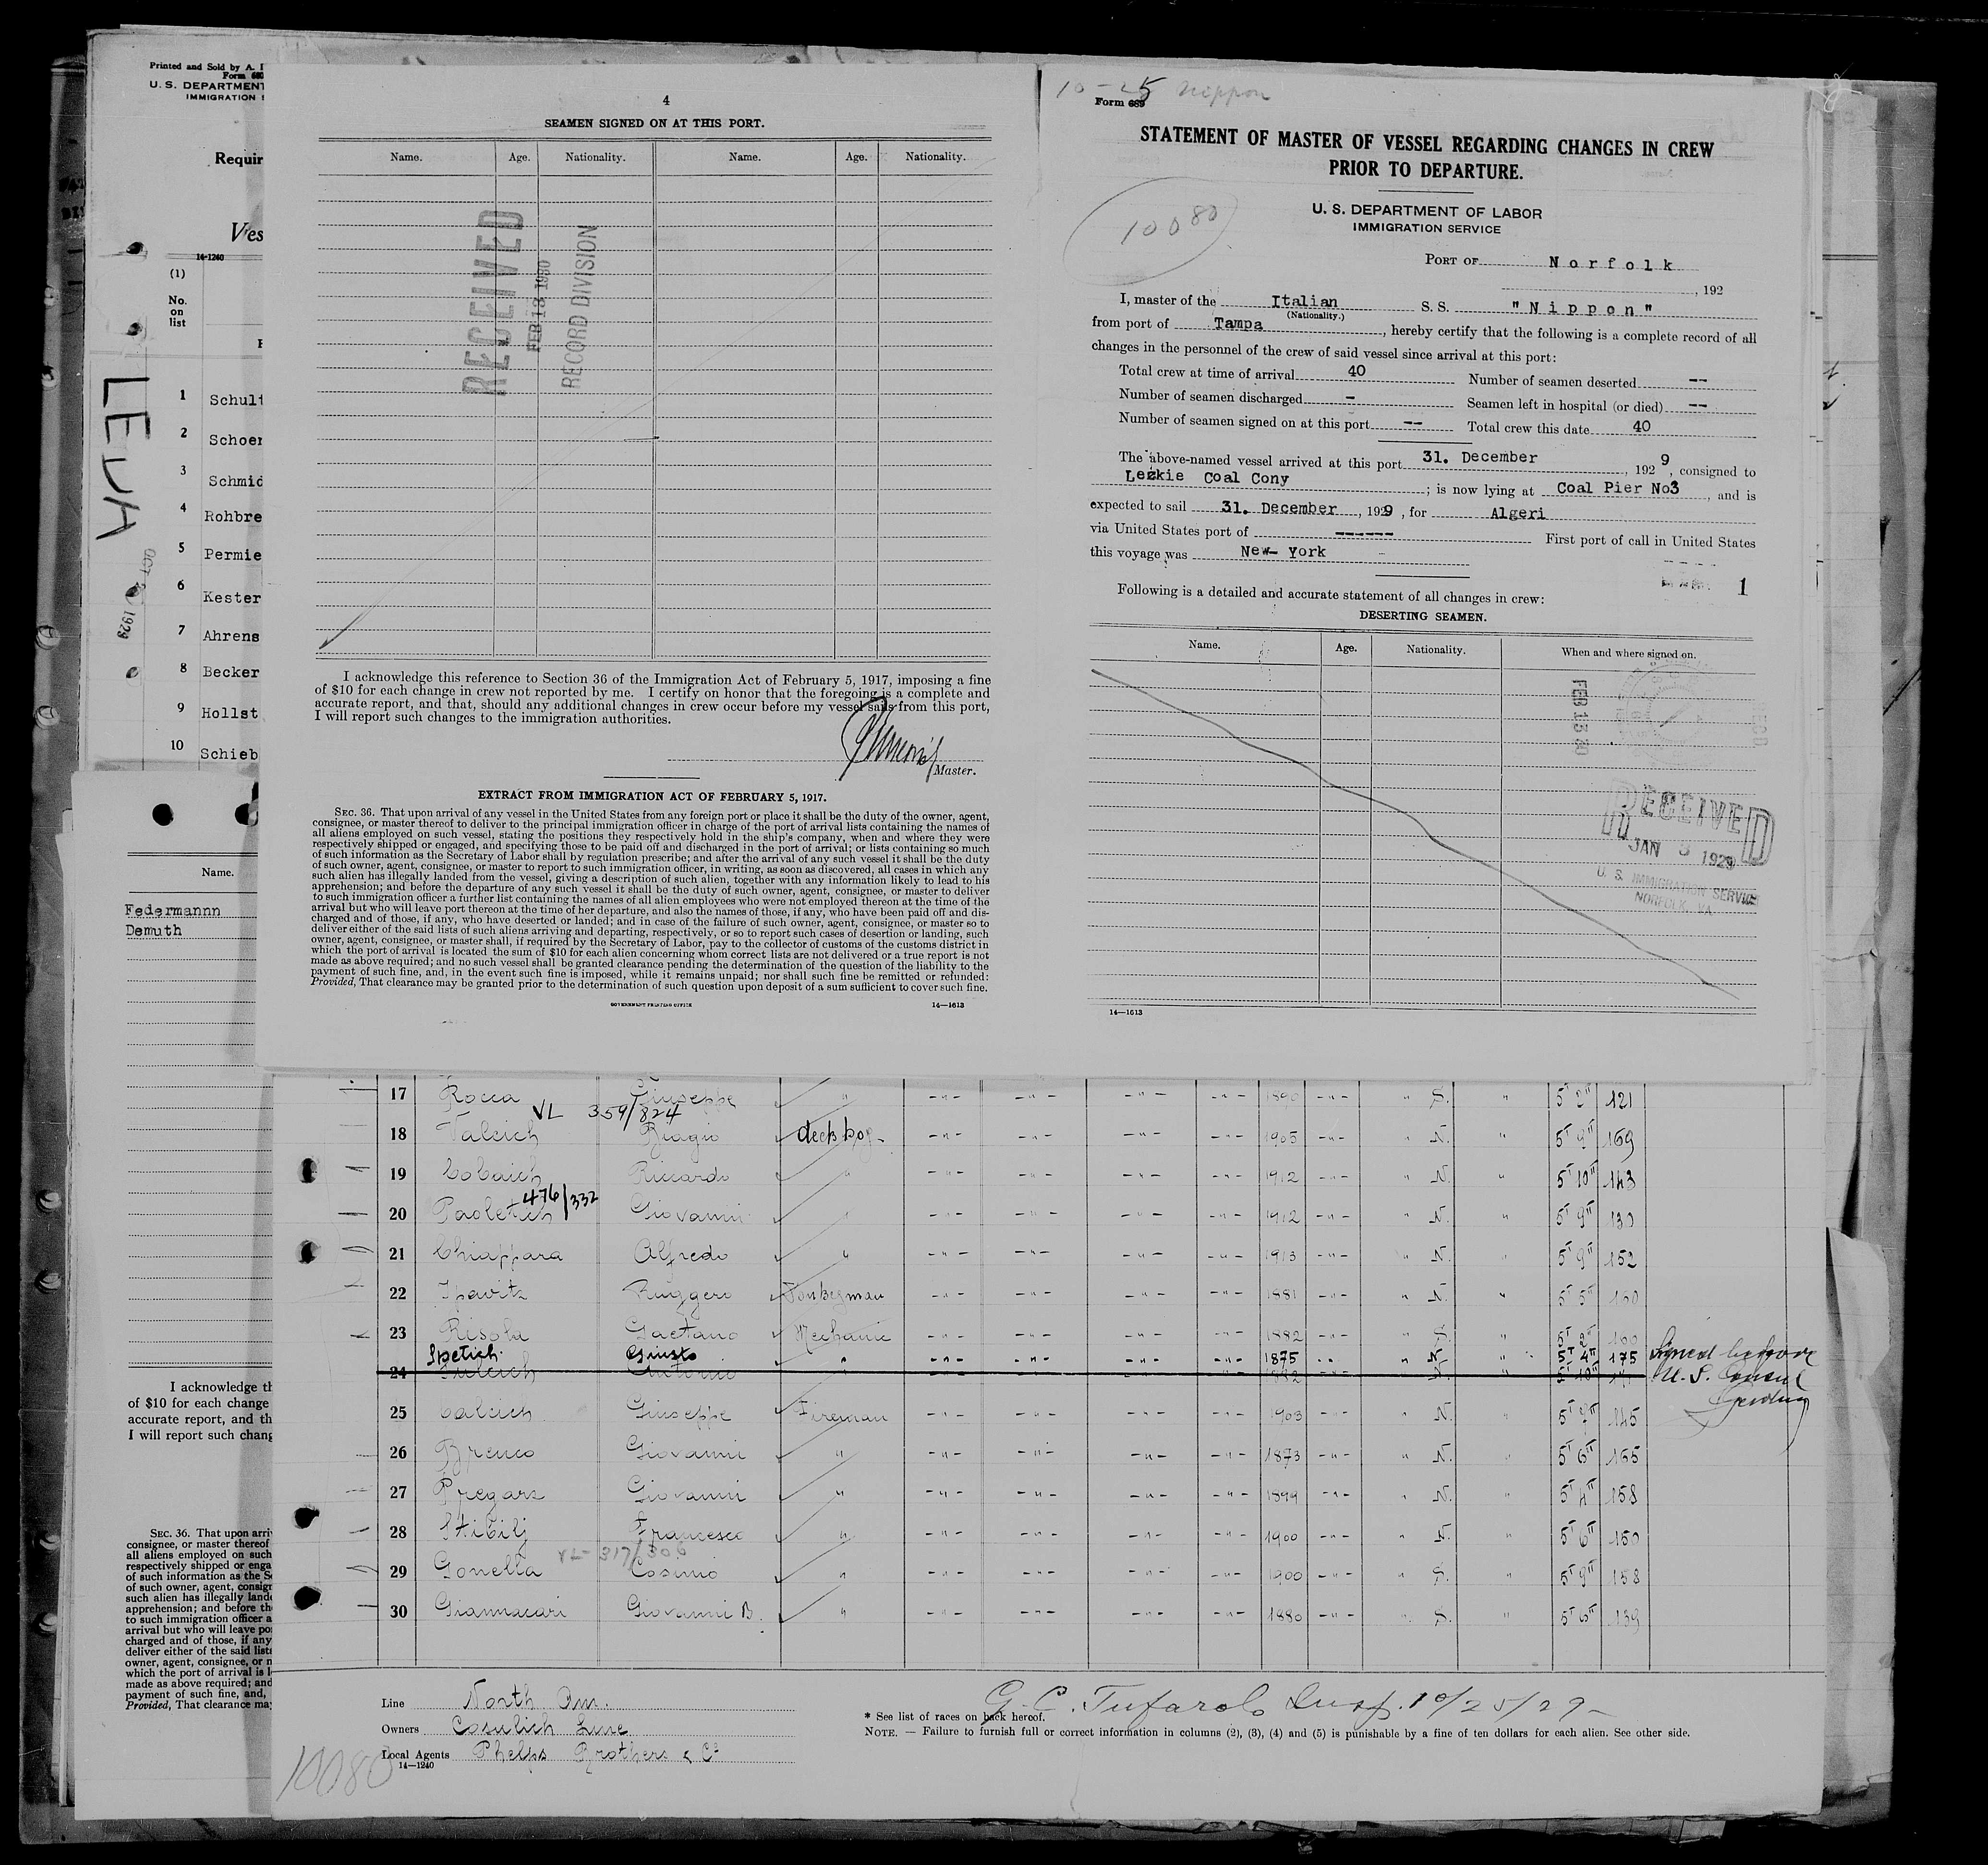 Printed and Sold by A.
Form 680
U. S. DEPARTMENT
IMMIGRATION
Requir
Ves
14-1240
(1)
No.
on
list
1 Schult
2 Schoer
3 Schmid
4 Rohbre
5 Permie
6 Kester
7 Ahrens
8 Becker
9 Hollst
10 Schieb
Name.
Federmannn
Demuth
I acknowledge th
of $10 for each change
accurate report, and th
I will report such chang
SEC. 36. That upon arri
consignee, or master thereof
all aliens employed on such
respectively shipped or enga
of such information as the Se
of such owner, agent, consign
such alien has illegally lande
apprehension; and before the
to such immigration officer a
arrival but who will leave po
charged and of those, if any
deliver either of the said lists
owner, agent, consignee, or m
which the port of arrival is l
made as above required; and
payment of such fine, and,
Provided, That clearance ma
4
SEAMEN SIGNED ON AT THIS PORT.
Name. Age. Nationality. Name. Age. Nationality.
RECEIVED
FEB 13 1930
RECORD DIVISION
I acknowledge this reference to Section 36 of the Immigration Act of February 5, 1917, imposing a fine
of $10 for each change in crew not reported by me. I certify on honor that the foregoing is a complete and
accurate report, and that, should any additional changes in crew occur before my vessel sails from this port,
I will report such changes to the immigration authorities.
Master.
EXTRACT FROM IMMIGRATION ACT OF FEBRUARY 5, 1917.
SEC. 36. That upon arrival of any vessel in the United States from any foreign port or place it shall be the duty of the owner, agent,
consignee, or master thereof to deliver to the principal immigration officer in charge of the port of arrival lists containing the names of
all aliens employed on such vessel, stating the positions they respectively hold in the ship's company, when and where they were
respectively shipped or engaged, and specifying those to be paid off and discharged in the port of arrival; or lists containing so much
of such information as the Secretary of Labor shall by regulation prescribe; and after the arrival of any such vessel it shall be the duty
of such owner, agent, consignee, or master to report to such immigration officer, in writing, as soon as discovered, all cases in which any
such alien has illegally landed from the vessel, giving a description of such alien, together with any information likely to lead to his
apprehension; and before the departure of any such vessel it shall be the duty of such owner, agent, consignee, or master to deliver
to such immigration officer a further list containing the names of all alien employees who were not employed thereon at the time of the
arrival but who will leave port thereon at the time of her departure, and also the names of those, if any, who have been paid off and dis-
charged and of those, if any, who have deserted or landed; and in case of the failure of such owner, agent, consignee, or master so to
deliver either of the said lists of such aliens arriving and departing, respectively, or so to report such cases of desertion or landing, such
owner, agent, consignee, or master shall, if required by the Secretary of Labor, pay to the collector of customs of the customs district in
which the port of arrival is located the sum of $10 for each alien concerning whom correct lists are not delivered or a true report is not
made as above required; and no such vessel shall be granted clearance pending the determination of the question of the liability to the
payment of such fine, and, in the event such fine is imposed, while it remains unpaid; nor shall such fine be remitted or refunded:
Provided, That clearance may be granted prior to the determination of such question upon deposit of a sum sufficient to cover such fine.
GOVERNMENT PRINTING OFFICE 14—1613
10-25 Nippon
Form 689
STATEMENT OF MASTER OF VESSEL REGARDING CHANGES IN CREW
PRIOR TO DEPARTURE.
10080
U. S. DEPARTMENT OF LABOR
IMMIGRATION SERVICE
PORT OF Norfolk
, 192
I, master of the Italian S. S. "Nippon"
(Nationality.)
from port of Tampa, hereby certify that the following is a complete record of all
changes in the personnel of the crew of said vessel since arrival at this port:
Total crew at time of arrival 40 Number of seamen deserted --
Number of seamen discharged - Seamen left in hospital (or died) --
Number of seamen signed on at this port -- Total crew this date 40
The above-named vessel arrived at this port 31. December, 1929, consigned to
Leckie Coal Cony; is now lying at Coal Pier No3, and is
expected to sail 31. December, 1929, for Algeri
via United States port of ------ First port of call in United States
this voyage was New- York
1
Following is a detailed and accurate statement of all changes in crew:
DESERTING SEAMEN.
Name. Age. Nationality. When and where signed on.
FEB 13 30
RECEIVED
JAN 3 1929
U. S. IMMIGRATION SERVICE
NORFOLK, VA
14—1613
17 Rocca Giuseppe " 1890 " S. " 5' 2" 121
VL 359/824
18 Valcich Biagio deck boy 1905 " N. " 5' 9" 169
19 Cobaich Riccardo " 1912 " N. " 5' 10" 143
476/332
20 Paoletich Giovanni " 1912 " N. " 5' 9" 130
21 Chiappara Alfredo " 1913 " N. " 5' 9" 152
22 Ipavitz Ruggero Donkeyman 1881 " N. " 5' 5" 160
23 Risola Gaetano Mechanic 1882 " S. "
Spetich Giusto " 1875 " N. 5' 4" 175 Signed before
24 Antonio 1882 U. S. Consul
25 Calcich Giuseppe Fireman 1903 " N. 145
26 Brenco Giovanni " 1873 " N. " 5' 6" 165
27 Pregarz Giovanni " 1899 " N. " 5' 4" 158
28 Stibilj Francesco " 1900 " N. 5' 6" 150
VL-317/306
29 Gonella Cosimo " 1900 " S. " 5' 9" 158
30 Giannacari Giovanni B. " 1880 " S. " 5' 6" 139
Line North Am.
Owners Cosulich Line
Local Agents Phelps Brothers & Co
14—1240
10080
G. C. Tufarolo Insp. 10/25/29
* See list of races on back hereof.
NOTE. — Failure to furnish full or correct information in columns (2), (3), (4) and (5) is punishable by a fine of ten dollars for each alien. See other side.